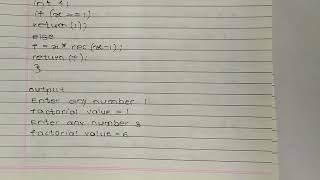 int f;
if (x==1)
return(1);
else
f=x* rec(x-1);
return(f);
}
output
Enter any number 1
factorial value = 1
Enter any number 3
factorial value = 6